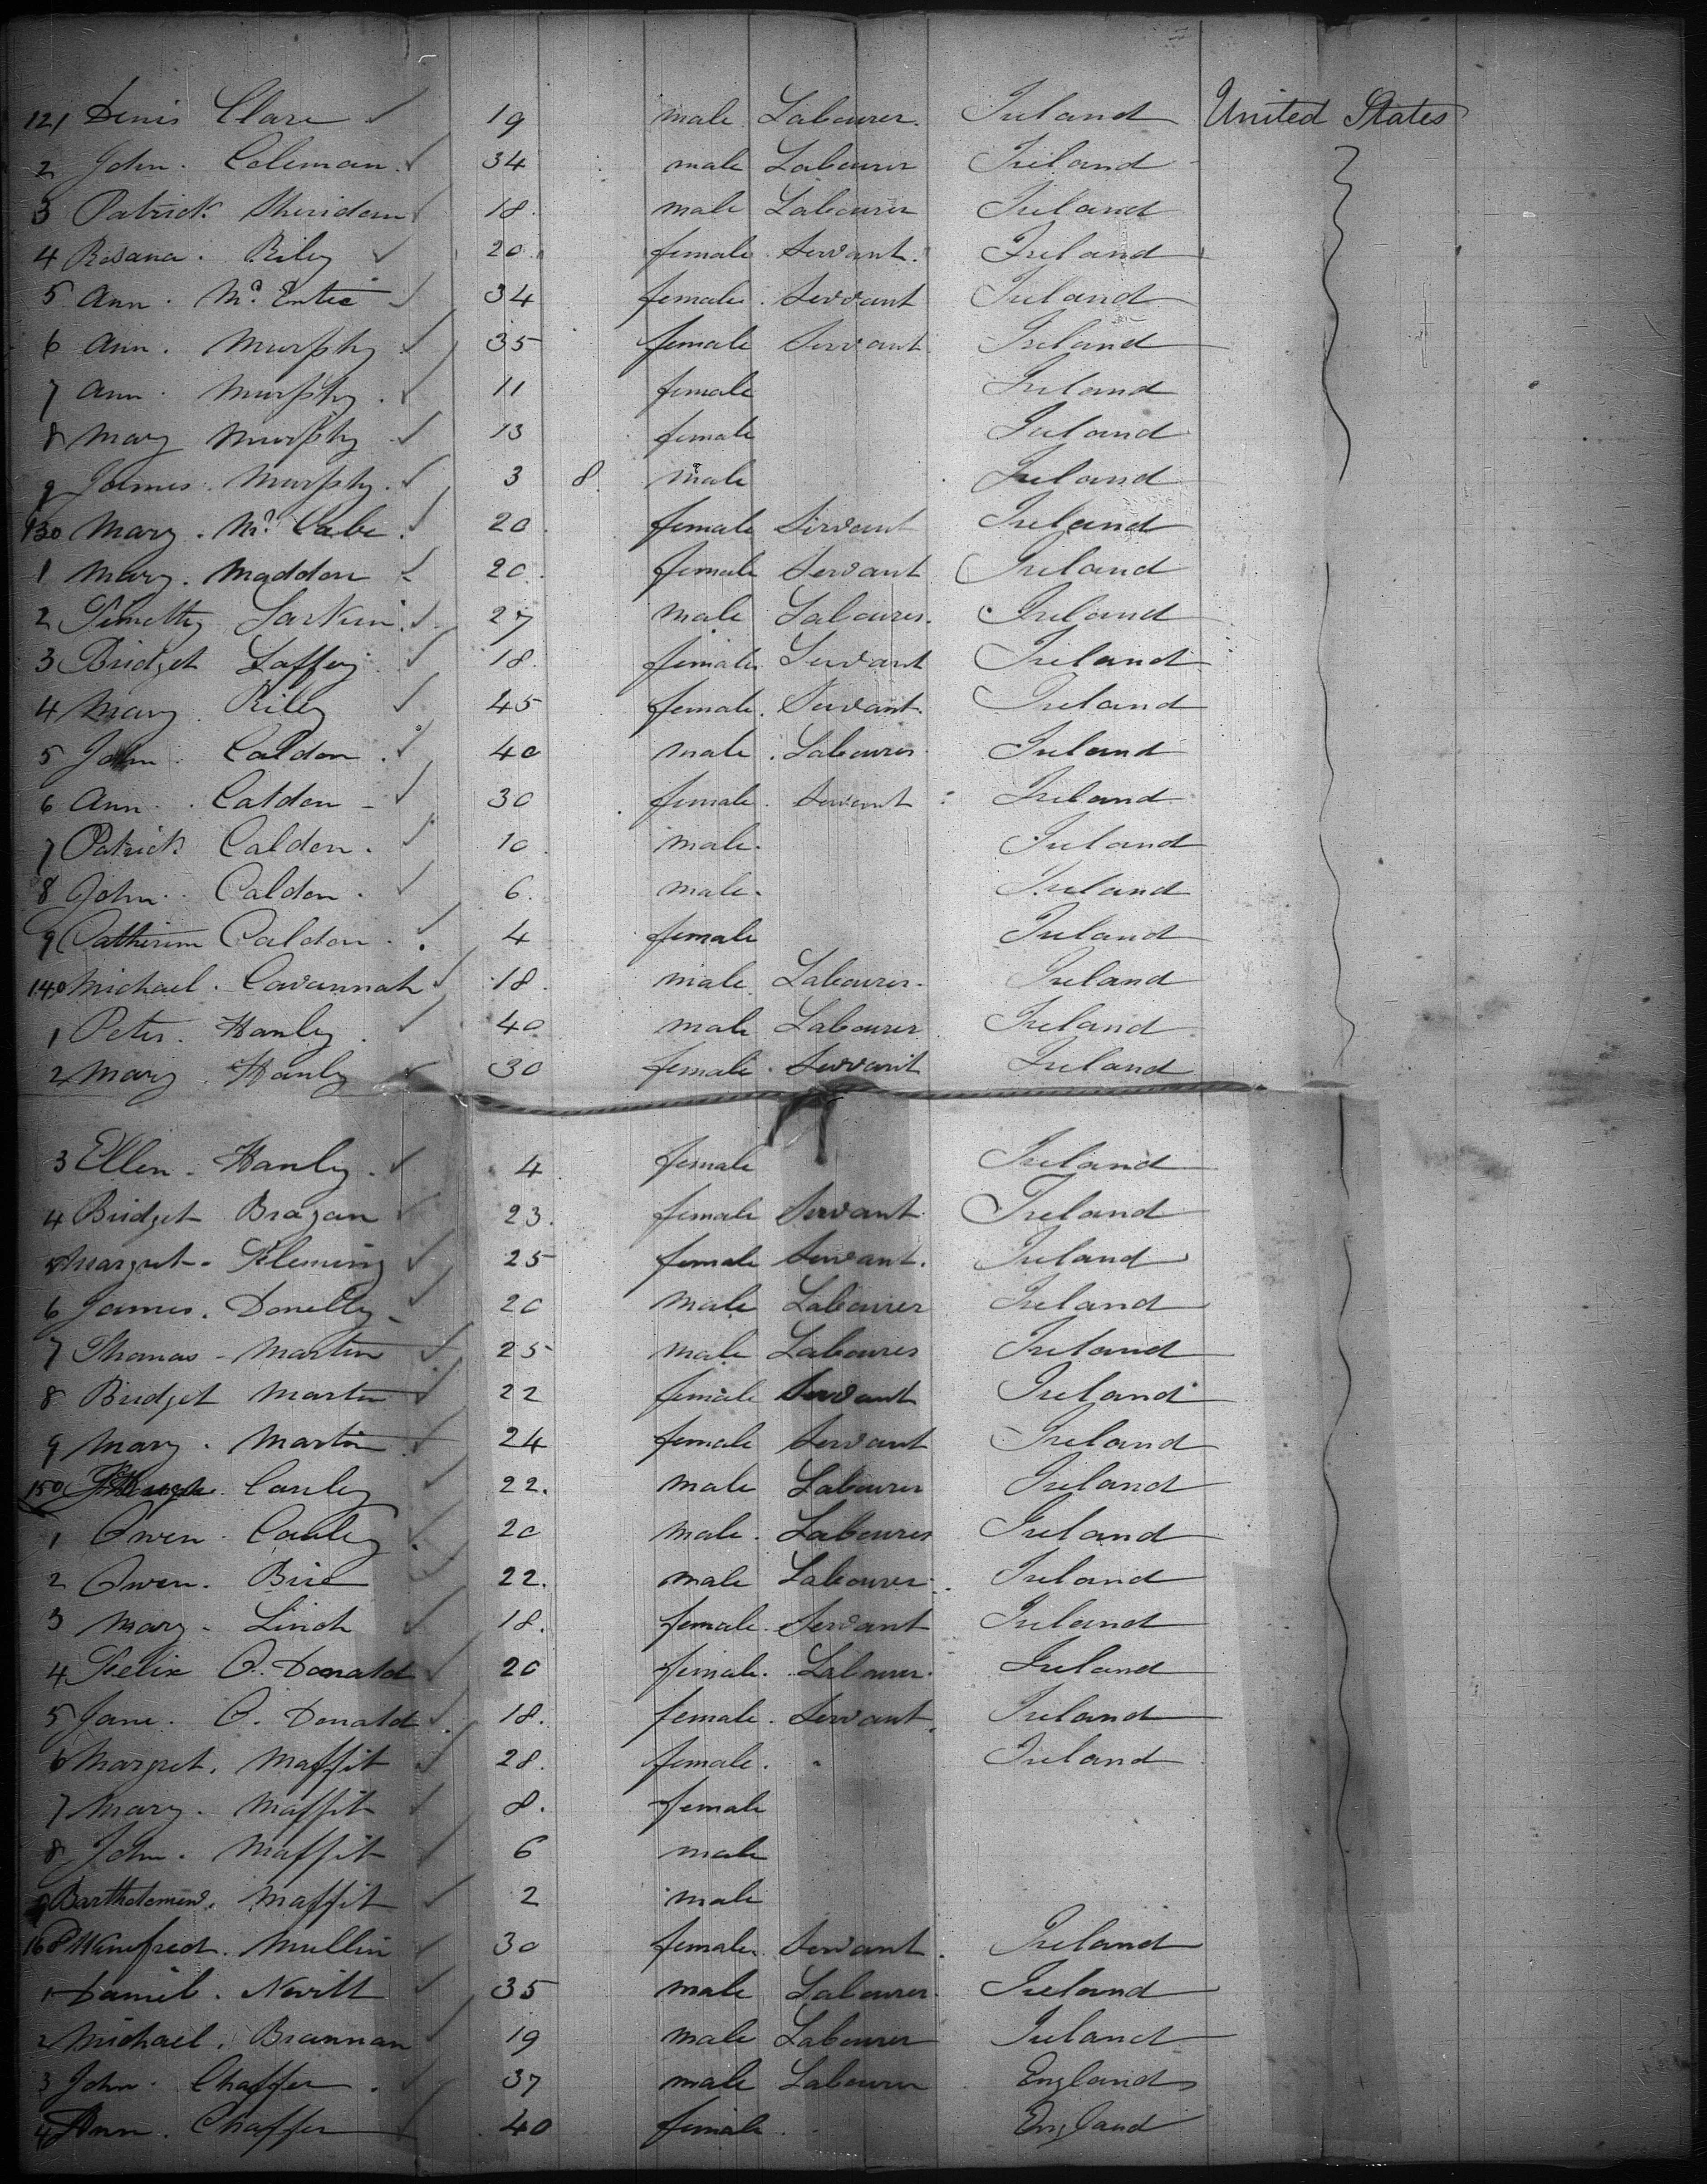 121 Denis Clare ✓ 19 male Labourer. Ireland United States
2 John. Coleman. ✓ 34 male Labourer Ireland
3 Patrick Sheridan ✓ 18. male Labourer Ireland
4 Rosana. Riley ✓ 20 female. Servant. Ireland
5 Ann. Mc. Entee ✓ 34 female. Servant Ireland
6 Ann. Murphy ✓ 35 female Servant Ireland
7 Ann. Murphy. ✓ 11 female Ireland
8 Mary Murphy ✓ 13 female Ireland
9 James. Murphy. ✓ 3 8. male Ireland
130 Mary. Mc. Cabe. ✓ 20 female Servant Ireland
1 Mary. Maddon ✓ 20. female Servant Ireland
2 Timothy Larkin. ✓ 27 male Labourer. Ireland
3 Bridget Laffey. ✓ 18. female Servant Ireland
4 Mary. Riley ✓ 45 female. Servant. Ireland
5 John. Caldon. ✓ 40 male. Labourer Ireland
6 Ann. Caldon - ✓ 30 female. Servant Ireland
7 Patrick Caldon. ✓ 10 male. Ireland
8 John. Caldon. ✓ 6. male. Ireland
9 Catherine Caldon. ✓ 4 female Ireland
140 Michael. Cavannah ✓ 18. male Labourer. Ireland
1 Peter. Hanley. ✓ 40 male Labourer Ireland
2 Mary. Hanley ✓ 30 female. Servant Ireland
3 Ellen. Hanley. ✓ 4 female Ireland
4 Bridget Bragan ✓ 23. female Servant Ireland
Margret. Fleming ✓ 25 female Servant. Ireland
6 James. Donelly ✓ 20 male Labourer Ireland
7 Thomas - Martin ✓ 25 male Labourer Ireland
8 Bridget Martin ✓ 22 female Servant Ireland
9 Mary. Martin ✓ 24 female Servant Ireland
150 Canley ✓ 22. male Labourer Ireland
1 Owen. Canley ✓ 20 male. Labourer Ireland
2 Owen. Birc ✓ 22. male Labourer. Ireland
3 Mary. Linch ✓ 18. female. Servant Ireland
4 Felix O. Donald ✓ 20 female. Labourer. Ireland
5 Jane. O. Donald ✓ 18. female. Servant. Ireland
6 Margret. Maffit ✓ 28. female. Ireland
7 Mary. Maffit ✓ 8. female
8 John. Maffit ✓ 6 male
9 Bartholomew. Maffit ✓ 2 male
160 Winefred. Mullin ✓ 30 female. Servant. Ireland
1 Daniel. Nevill ✓ 35 male Labourer. Ireland
2 Michael. Brannan ✓ 19 male Labourer Ireland
3 John. Chaffer. ✓ 37 male Labourer England
4 Ann. Chaffer ✓ 40 female. England